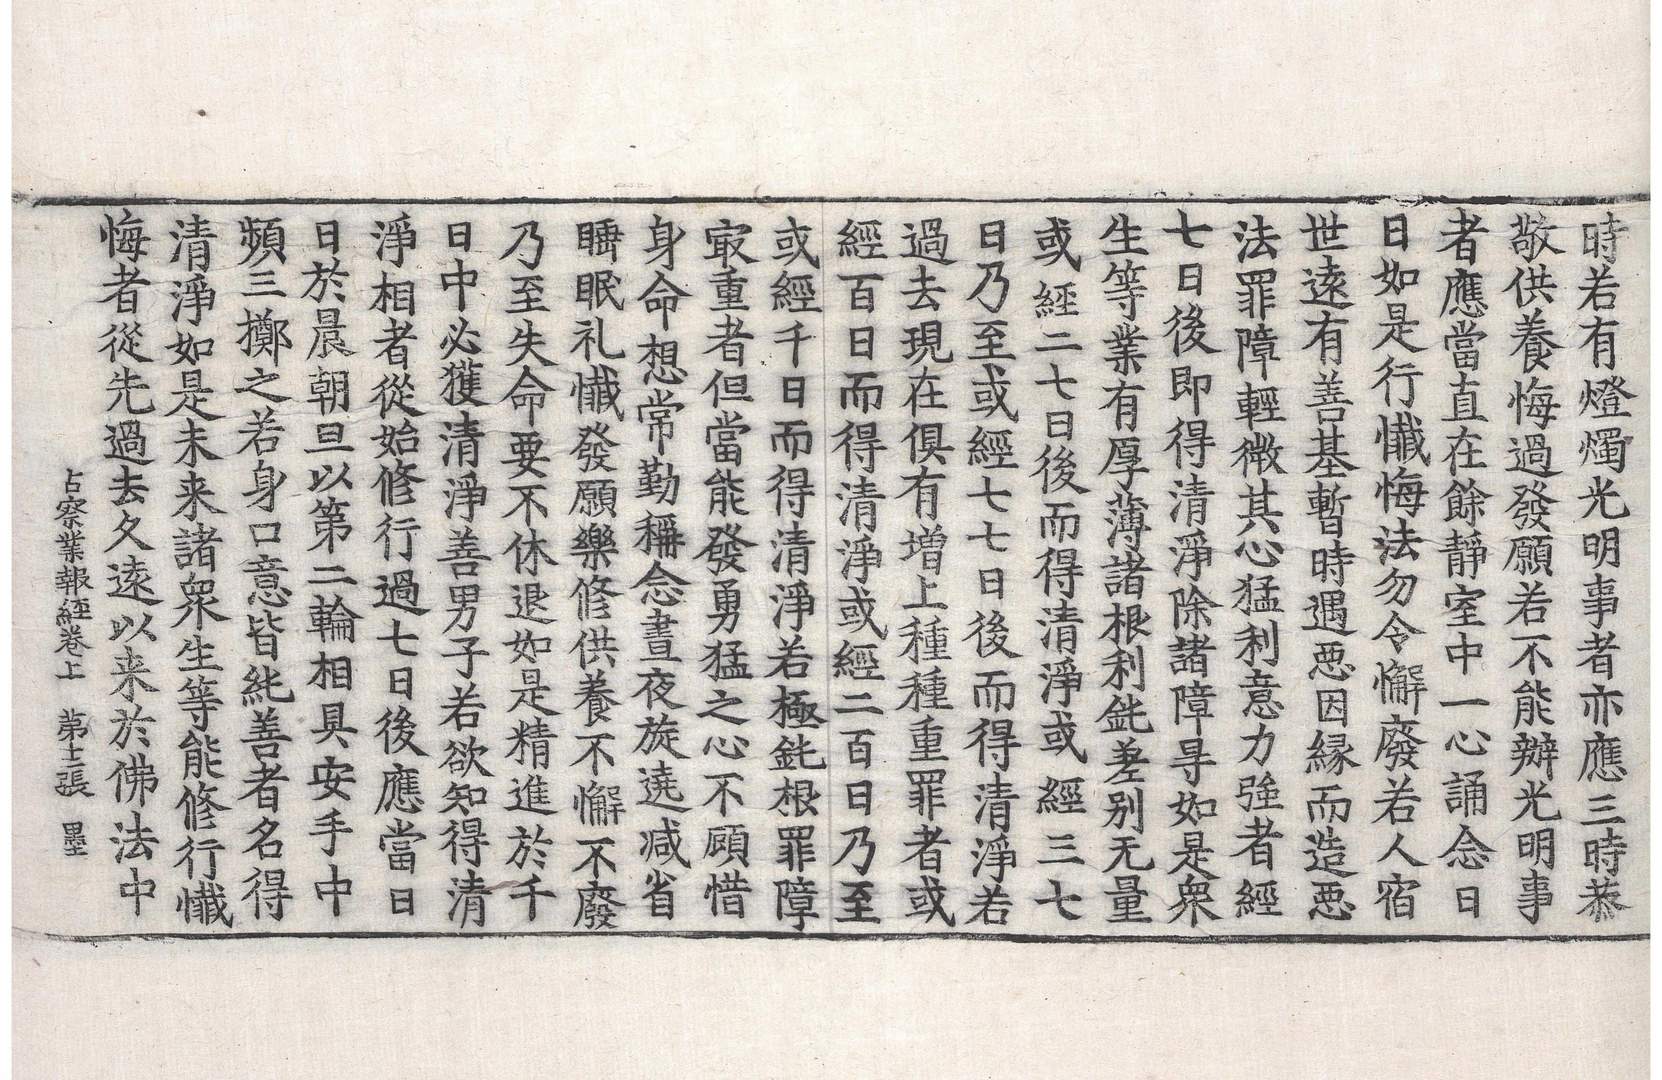 時若有燈燭光明事者亦應三時恭
敬供養悔過發願若不能辦光明事
者應當直在餘靜室中一心誦念日
日如是行懺悔法勿令懈廢若人宿
世遠有善基暫時遇惡因縁而造惡
法罪障輕微其心猛利意力強者經
七日後即得清淨除諸障㝵如是衆
生等業有厚薄諸根利鈍差別无量
或經二七日後而得清淨或經三七
日乃至或經七七日後而得清淨若
過去現在俱有增上種種重罪者或
經百日而得清淨或經二百日乃至
或經千日而得清淨若極鈍根罪障
㝡重者但當能發勇猛之心不顧惜
身命想常勤稱念晝夜旋遶减省
睡眠礼懺發願樂修供養不懈不廢
乃至失命要不休退如是精進於千
日中必獲清淨善男子若欲知得清
淨相者從始修行過七日後應當日
日於晨朝旦以第二輪相具安手中
頻三擲之若身口意皆純善者名得
清淨如是未来諸衆生等能修行懺
悔者從先過去久遠以来於佛法中
占察業報經卷上　第十二張　墨